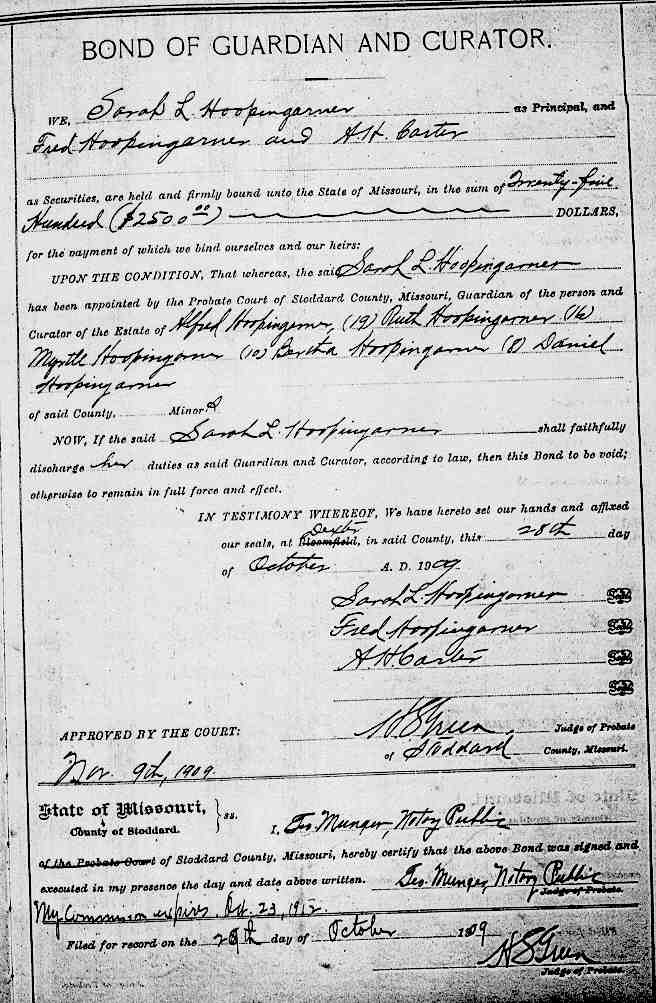 BOND OF GUARDIAN AND CURATOR.
WE, Sarah L. Hoopingarner as Principal, and
Fred Hoopingarner and A.H. Carter
as Securities, are held and firmly bound unto the State of Missouri, in the sum of Twenty-five
Hundred ($2500 00) DOLLARS,
for the payment of which we bind ourselves and our heirs:
UPON THE CONDITION, That whereas, the said Sarah L. Hoopingarner
has been appointed by the Probate Court of Stoddard County, Missouri, Guardian of the person and
Curator of the Estate of Alfred Hoopingarner, (19) Ruth Hoopingarner (16)
Myrtle Hoopingarner (10) Bertha Hoopingarner (8) Daniel
Hoopingarner
of said County, Minors
NOW, If the said Sarah L. Hoopingarner shall faithfully
discharge her duties as said Guardian and Curator, according to law, then this Bond to be void;
otherwise to remain in full force and effect.
IN TESTIMONY WHEREOF, We have hereto set our hands and affixed
Dexter
our seals, at Bloomfield, in said County, this 28th day
of October A. D. 1909.
Sarah L. Hoopingarner Seal
Fred Hoopingarner Seal
A.H. Carter Seal
Seal
APPROVED BY THE COURT: Green, Judge of Probate
of Stoddard County, Missouri.
Nov. 9th, 1909.
State of Missouri, } ss.
County of Stoddard.
I, Munger, Notary Public
of the Probate Court of Stoddard County, Missouri, hereby certify that the above Bond was signed and
executed in my presence the day and date above written. Munger, Notary Public
Judge of Probate.
My Commission expires Oct. 23, 1912.
Filed for record on the 28th day of October 1909
Green
Judge of Probate.